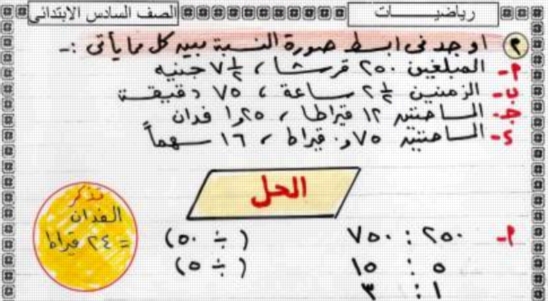 رياضيـــات الصف السادس الابتدائي
٢ اوجد فى ابسط صورة النسبة بين كل مما يأتى :-
أ- المبلغين ٢٥٠ قرشا ، ½ ٧ جنيه
ب- الزمنين ½ ٢ ساعة ، ٧٥ دقيقة
جـ- المساحتين ١٢ قيراطا ، ١,٢٥ فدان
د- المساحتين ٠,٧٥ قيراط ، ١٦ سهماً
الحل
تذكر
الفدان
= ٢٤ قيراط
أ- ٢٥٠ : ٧٥٠ (÷ ٥٠)
٥ : ١٥ (÷ ٥)
١ : ٣